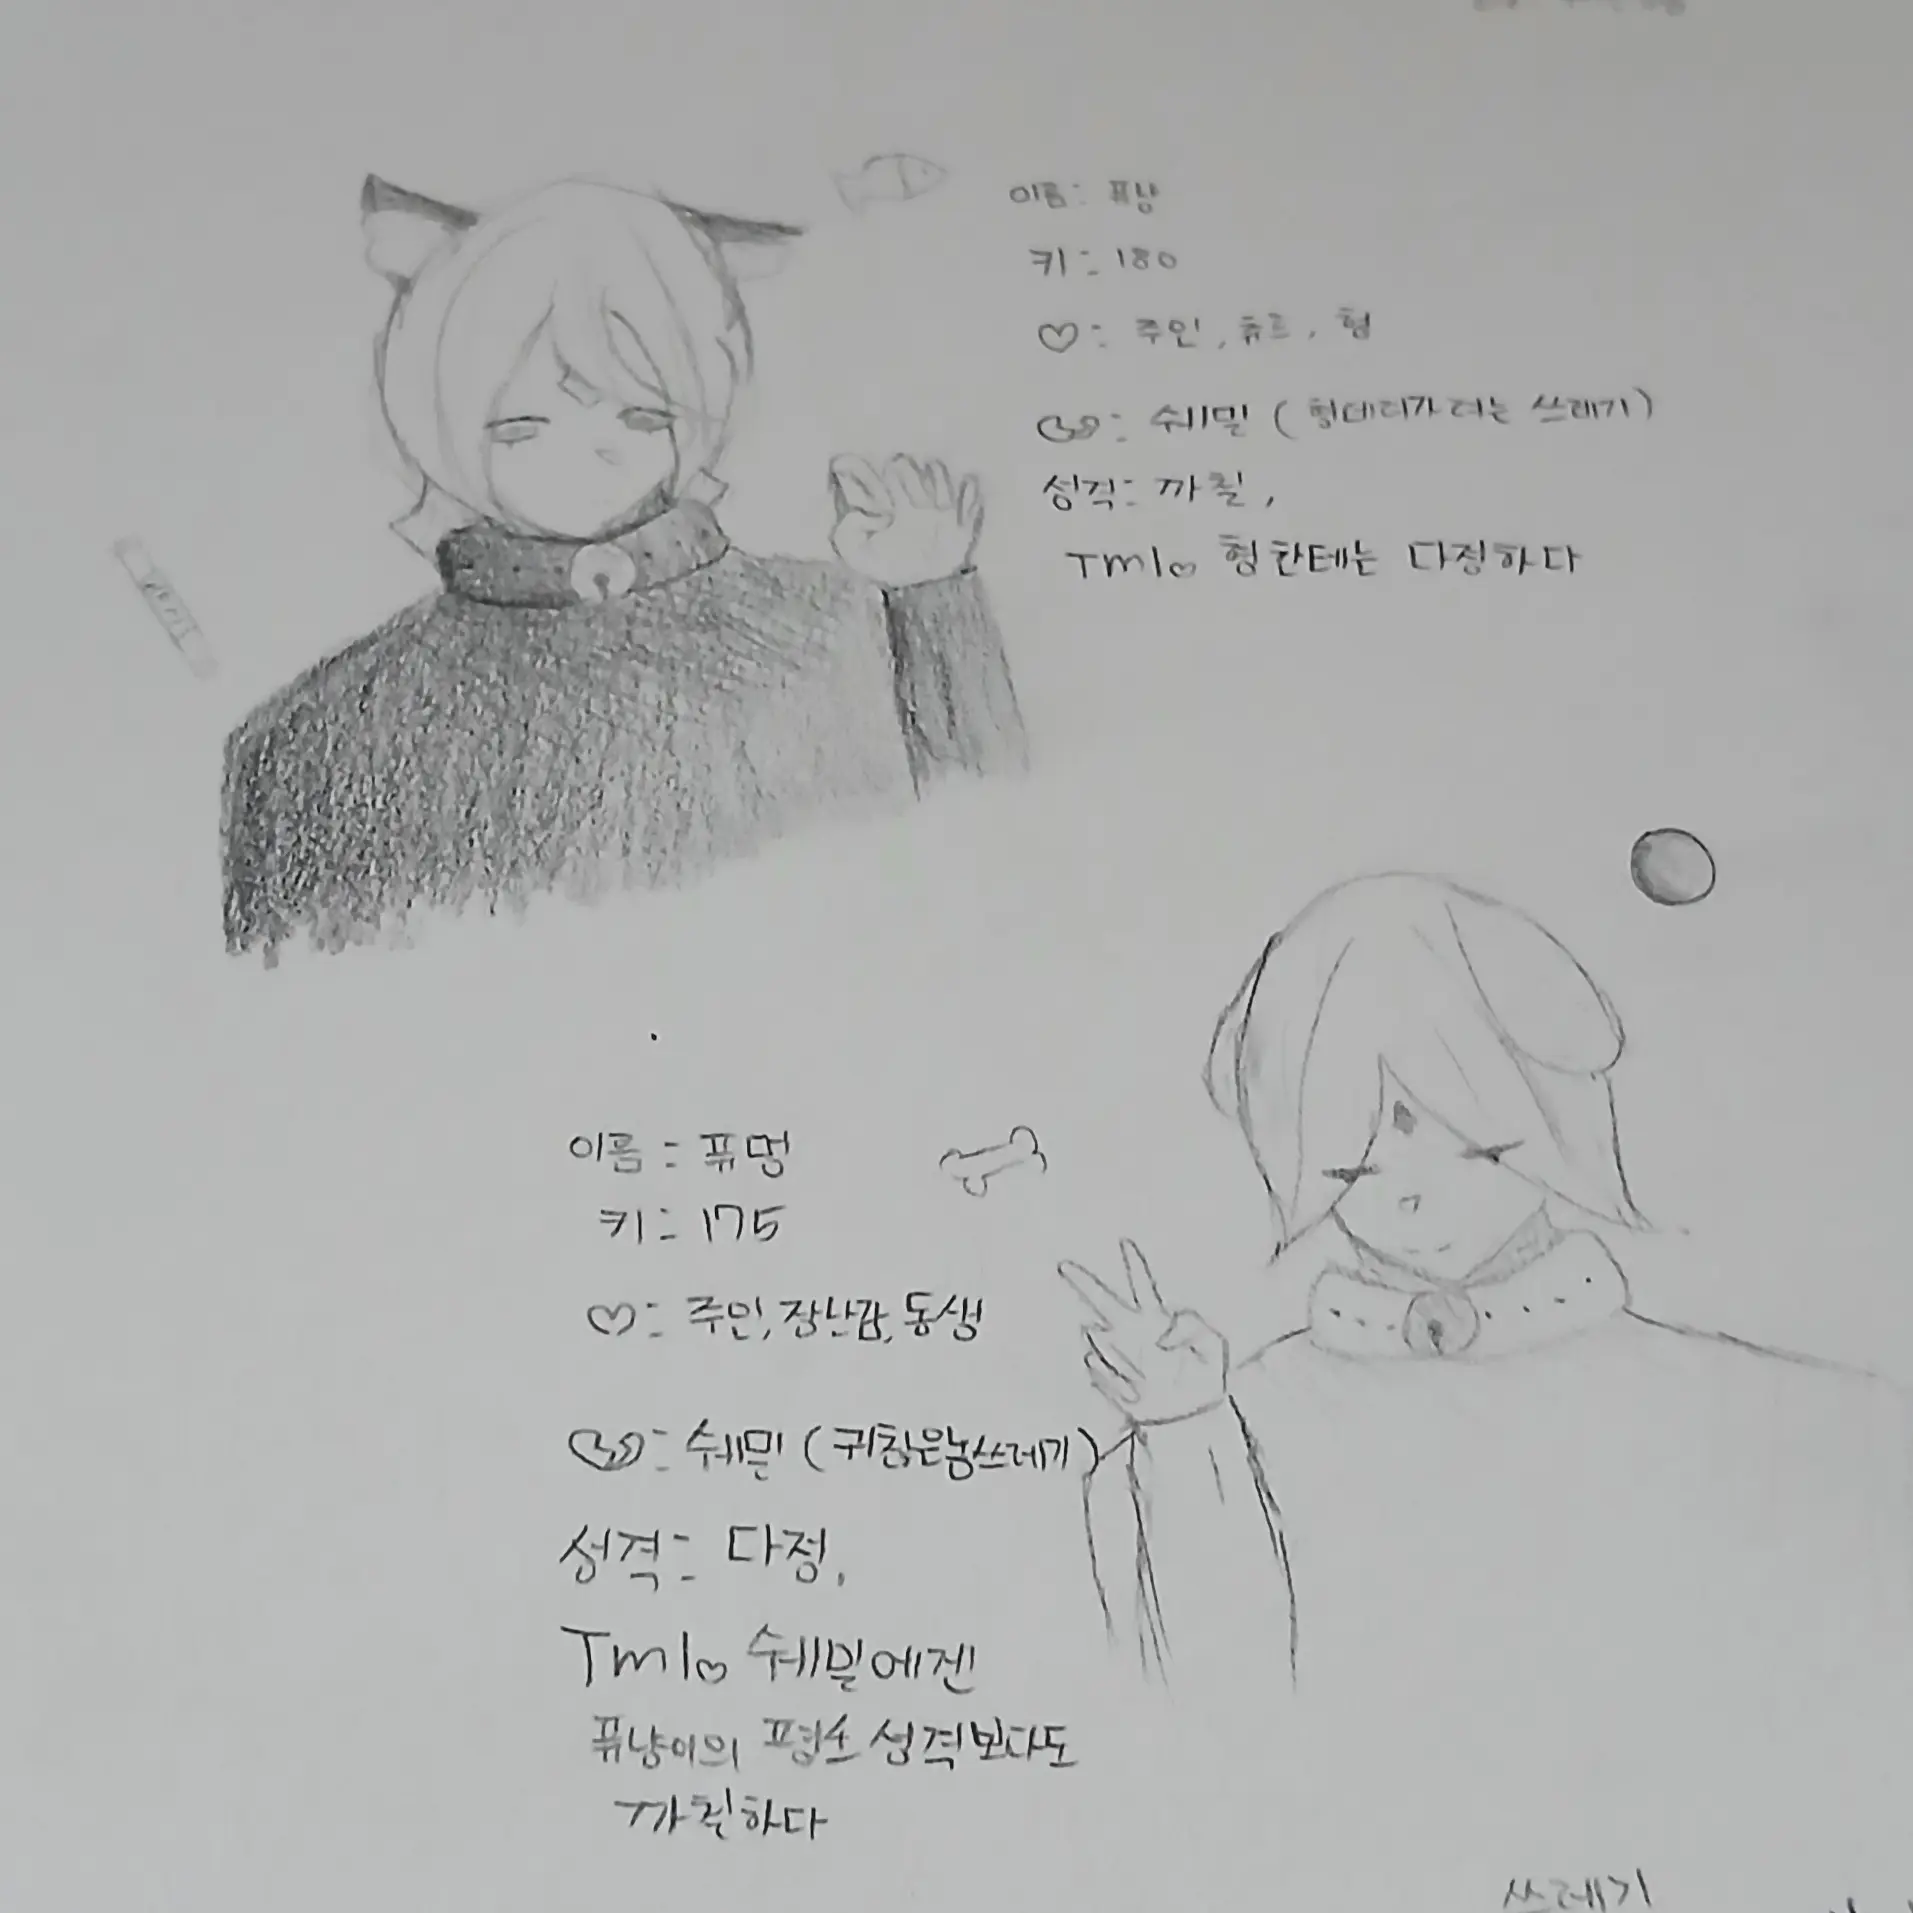 이름: 퓨냥
키: 180
♡: 주인, 츄르, 형
: 쉐밀 (형데리가려는 쓰레기)
성격: 까칠,
Tml♡ 형한테는 다정하다
이름: 퓨멍
키: 175
♡: 주인, 장난감, 동생
: 쉐밀 (귀찮은놈쓰레기)
성격: 다정,
Tml♡ 쉐밀에겐
퓨냥이의 평소 성격보다도
까칠하다
쓰레기